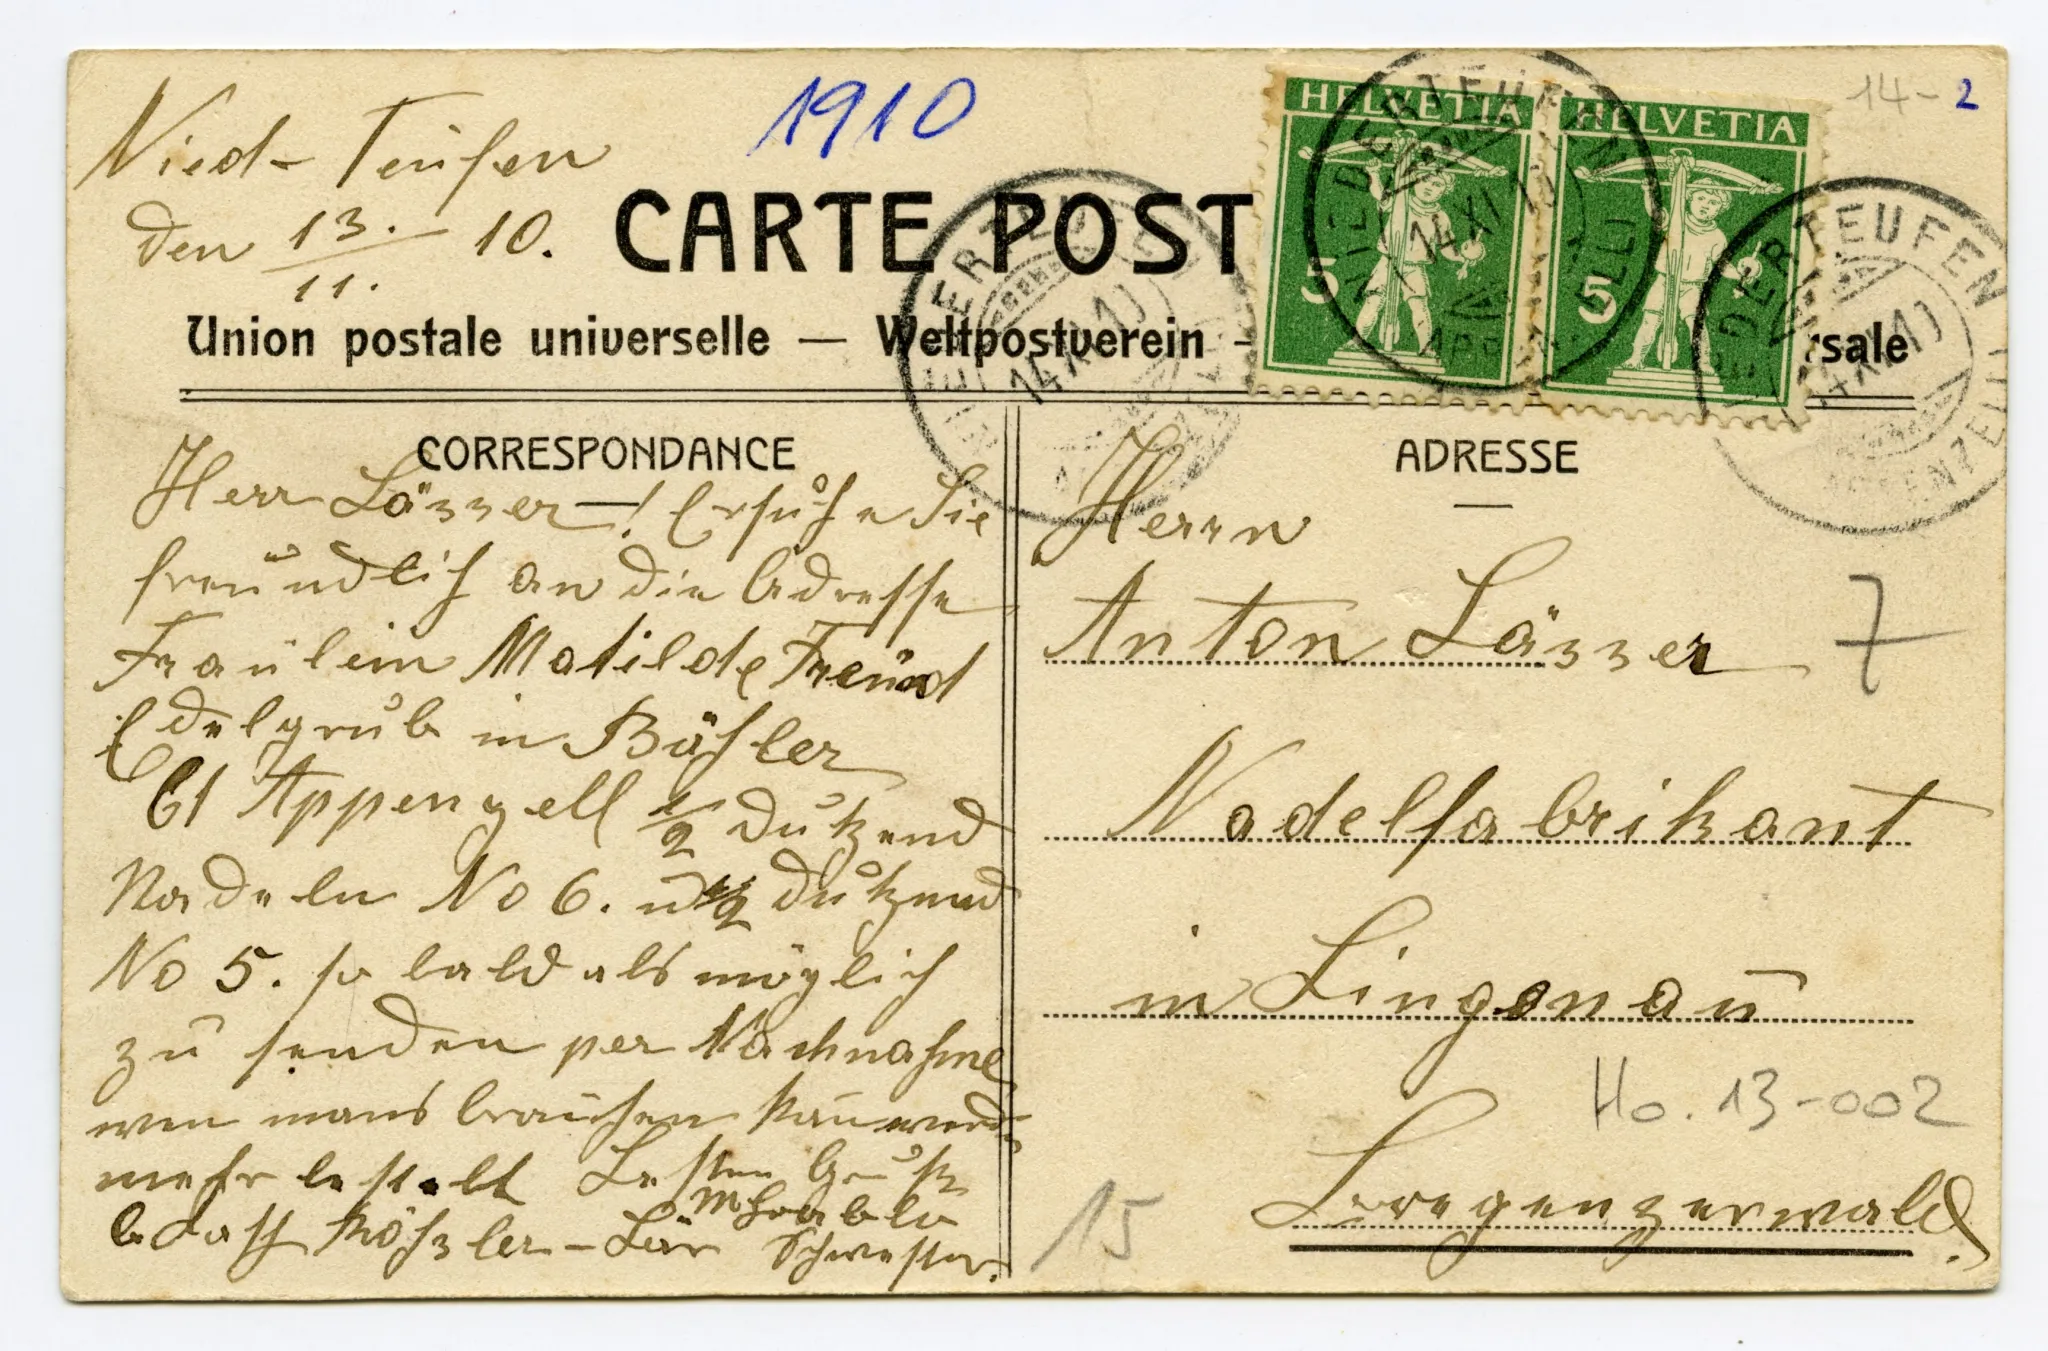 1910
14-2
Nied-Teufen
den 13./11. 10.
CARTE POST
Union postale universelle — Weltpostverein -
rsale
HELVETIA
5
HELVETIA
5
NIEDERTEUFEN
14 XI 10
CORRESPONDANCE
Herr Läzzer! Ersuche Sie
freundlich an die Adresse
Fraülein Matilde Freünd
Edelgrub in Bühler
Ct Appenzell 1/2 Dutzend
Nadeln No 6. u 1/2 Dutzend
No 5. so bald als möglich
zu senden per Nachnahme
wen mans brauchen kan werde
mehr bestelt Besten Gruss
Schwester.
ADRESSE
Herrn
Anton Läzzer
7
Nadelfabrikant
in Lingenau
Ho. 13-002
Bregenzerwald.
15